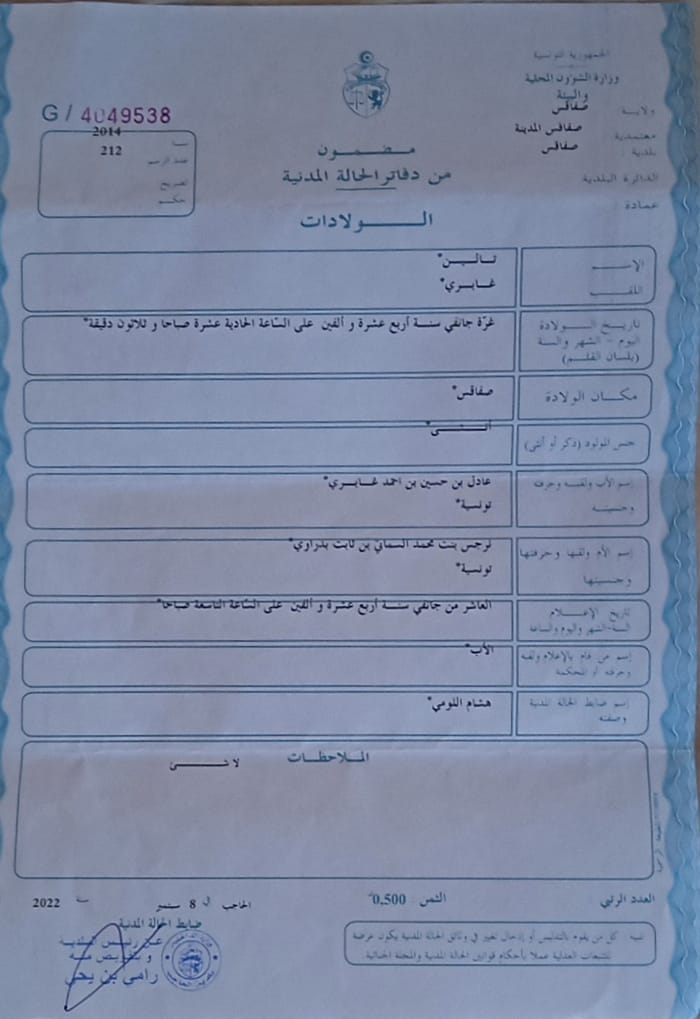 الجمهورية التونسية
وزارة الشؤون المحلية
والبيئة
ولاية : صفاقس
معتمدية : صفاقس المدينة
بلدية : صفاقس
الدائرة البلدية
عمادة :
G / 4049538
سنة 2014
عدد الرسم 212
التصريح
حكم
مضمون
من دفاتر الحالة المدنية
الولادات
الإسم تالين*
اللقب غابري*
تاريخ الولادة غرّة جانفي سنة أربع عشرة و ألفين على السّاعة الحادية عشرة صباحا و ثلاثون دقيقة*
اليوم - الشهر والسنة
(بلسان القلم)
مكان الولادة صفاقس*
جنس المولود (ذكر أو أنثى) أنثى*
إسم الأب ولقبه وحرفته عادل بن حسين بن احمد غابري*
وجنسيته تونسية*
إسم الأم ولقبها وحرفتها نرجس بنت محمد السماتي بن ثابت بدراوي*
وجنسيتها تونسية*
تاريخ الإعلام العاشر من جانفي سنة أربع عشرة و ألفين على السّاعة التاسعة صباحا*
السنة-الشهر واليوم والساعة
إسم من قام بالإعلام ولقبه الأب*
وحرفته أو المحكمة
إسم ضابط الحالة المدنية هشام اللومي*
وصفته
الملاحظات
لا شئ
العدد الرتبي
الثمن 0,500د
الحاجب في 8 سبتمبر سنة 2022
ضابط الحالة المدنية
عن رئيس البلدية
و بتفويض منه
رامي بن يحي
تنبيه : كل من يقوم بالتدليس أو إدخال تغيير في وثائق الحالة المدنية يكون عرضة
للتتبعات العدلية عملا بأحكام قوانين الحالة المدنية والمجلة الجنائية.